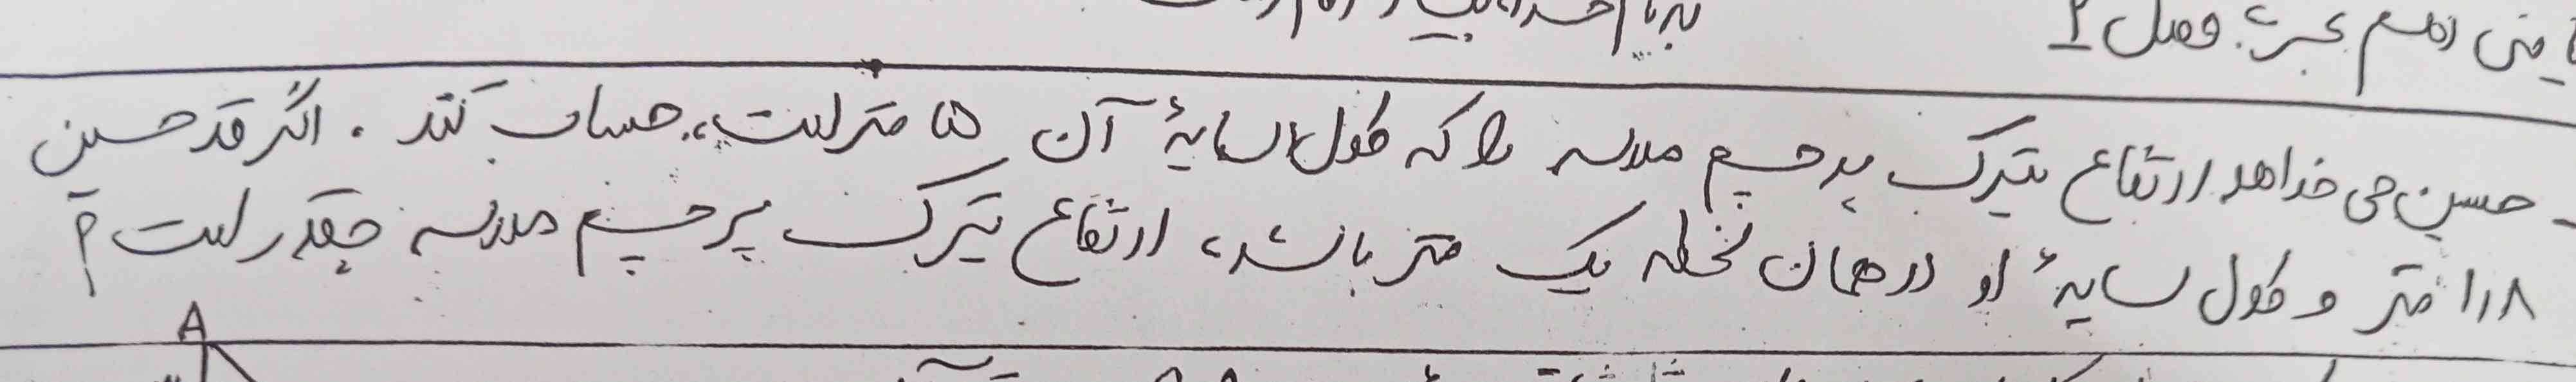 ریاضی دهم تجربی فصل ۲
حسین می خواهد ارتفاع تیرک پرچم مدرسه را که طول سایهٔ آن ۵ متر است، حساب کند. اگر قد حسین
۱٫۸ متر و طول سایهٔ او در همان لحظه یک متر باشد، ارتفاع تیرک پرچم مدرسه چقدر است؟
A